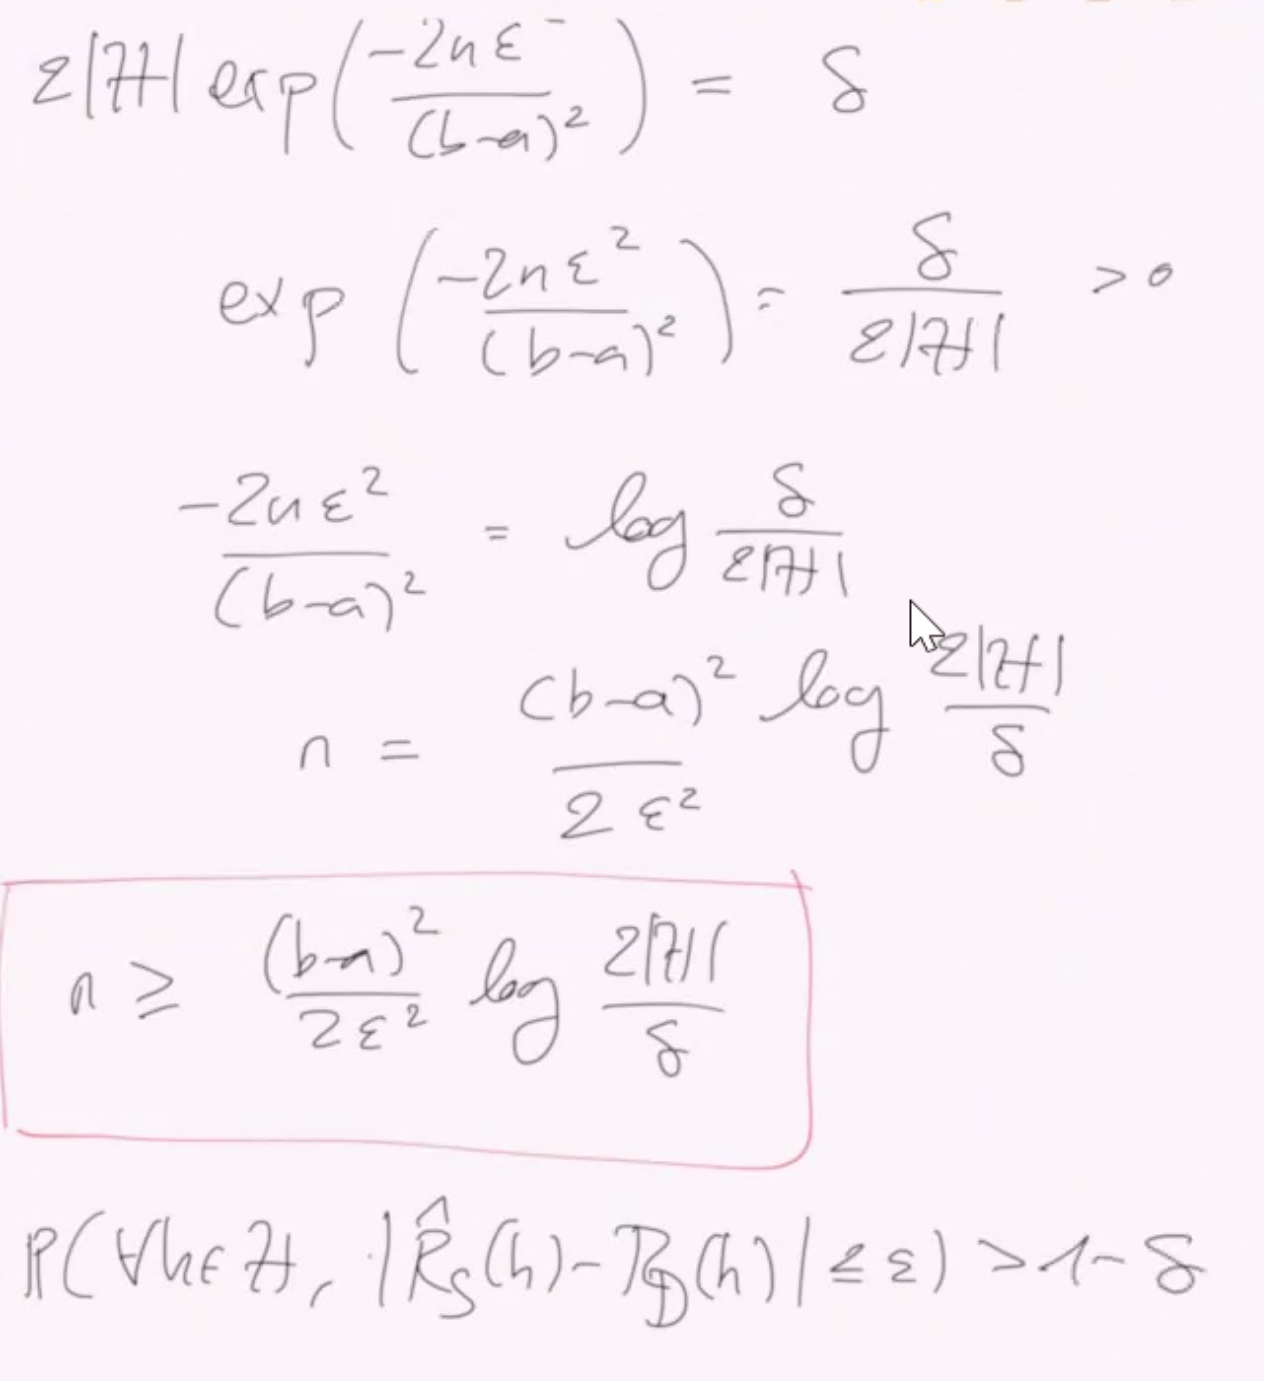 2|ℋ| exp(-2nε²/(b-a)²) = δ
exp(-2nε²/(b-a)²) = δ/2|ℋ| >0
-2nε²/(b-a)² = log δ/2|ℋ|
n = (b-a)²/2ε² log 2|ℋ|/δ
n ≥ (b-a)²/2ε² log 2|ℋ|/δ
ℙ(∀h∈ℋ, |R̂_S(h)-R_D(h)| ≤ ε) > 1-δ